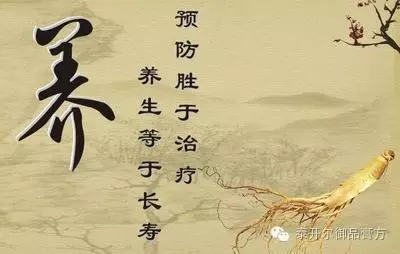 养
预防胜于治疗
养生等于长寿
泰开尔御品膏方